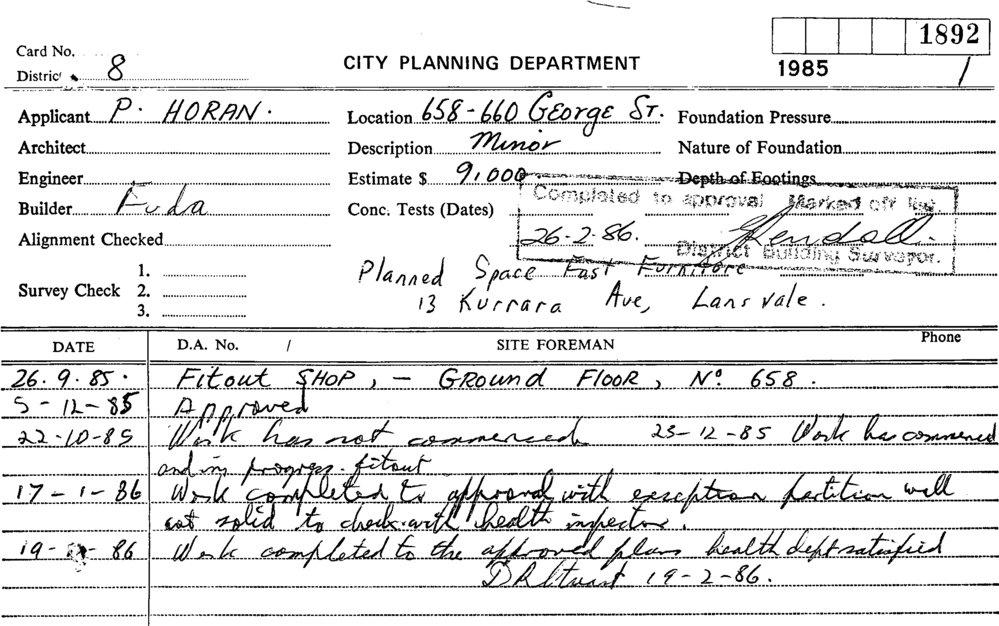 1892
Card No.
District 8
CITY PLANNING DEPARTMENT
1985 /
Applicant P. HORAN.
Location 658-660 George St.
Foundation Pressure
Architect
Description Minor
Nature of Foundation
Engineer
Estimate $ 9,000
Depth of Footings
Builder Fuda
Conc. Tests (Dates)
Completed to approval Marked off
26-2-86.
District Building Surveyor.
Alignment Checked
Survey Check
1.
2.
3.
Planned Space East Furniture
13 Kurrara Ave, Lansvale.
DATE D.A. No. / SITE FOREMAN Phone
26.9.85. Fitout SHOP, - GROUND FLOOR, No. 658.
5-12-85 Approved
22-10-85 Work has not commenced 23-12-85 Work has commenced
and in progress. fitout
17-1-86 Work completed to approval with exception partition wall
not solid to check with health inspector.
19- -86 Work completed to the approved plans health dept satisfied
19-2-86.